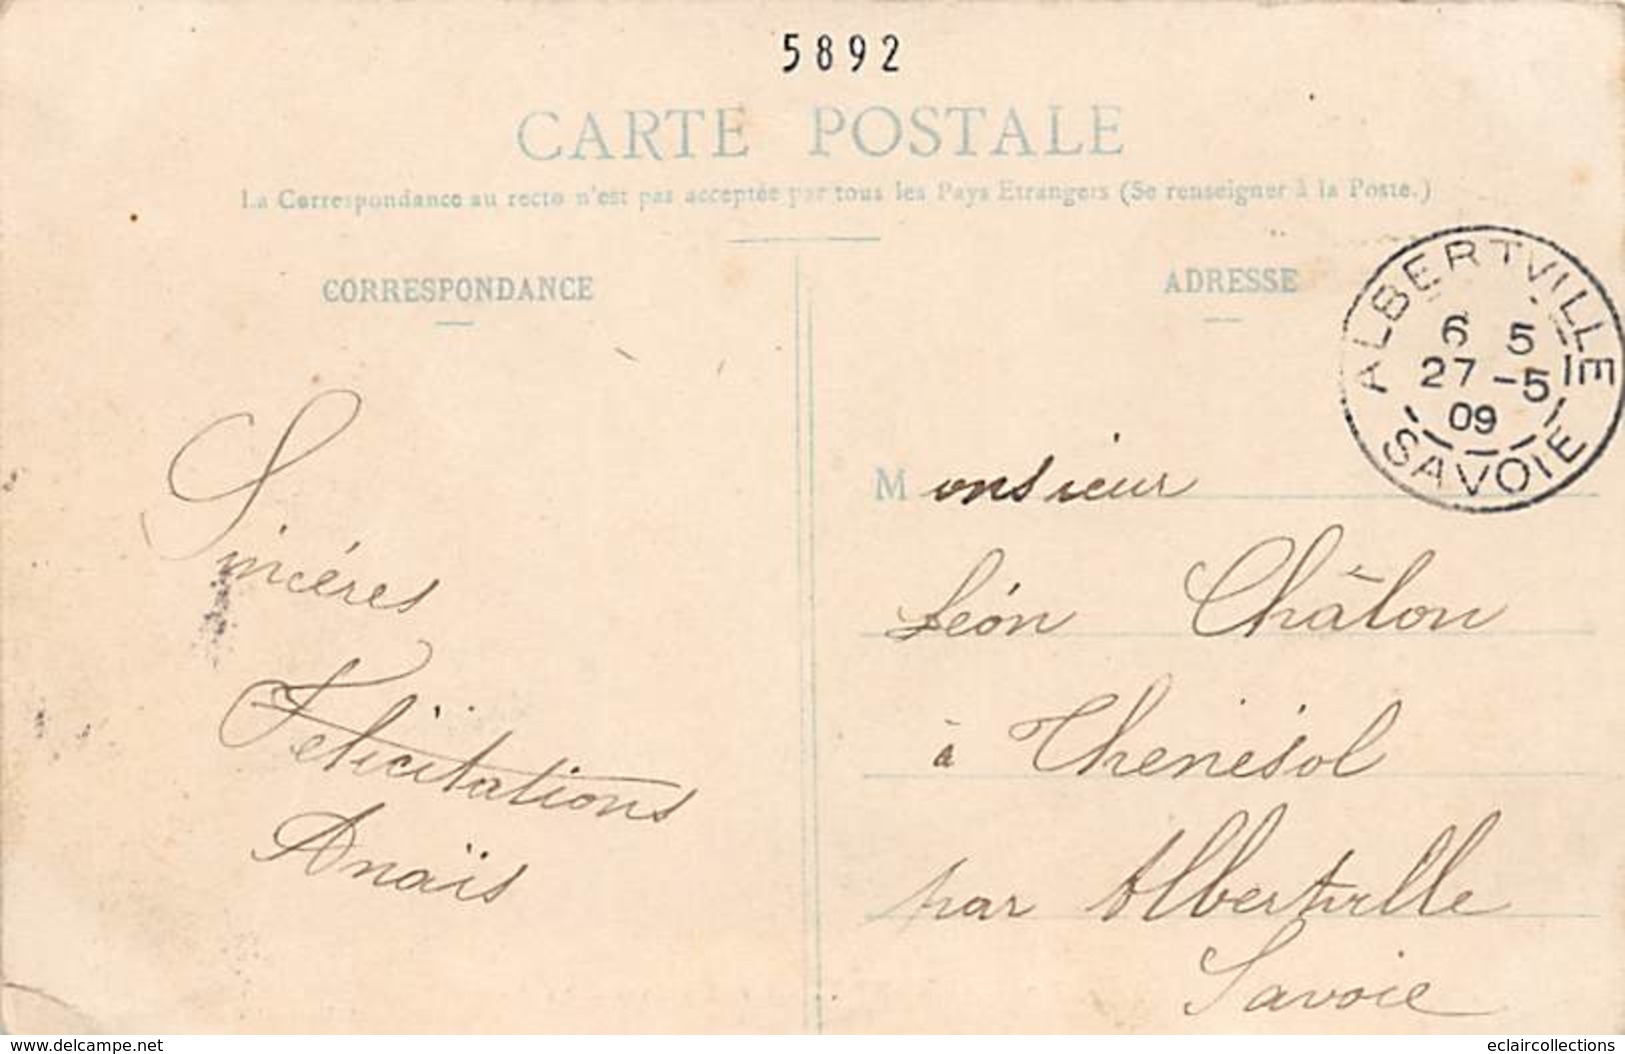 5892
CARTE POSTALE
La Correspondance au recto n'est pas acceptée par tous les Pays Etrangers (Se renseigner à la Poste.)
CORRESPONDANCE
Sincéres
Félicitations
Anaïs
ADRESSE
ALBERTVILLE
6 5
27 -5
09
SAVOIE
Monsieur
Léon Châlon
à Thenésol
par Albertville
Savoie
www.delcampe.net
eclaircollections